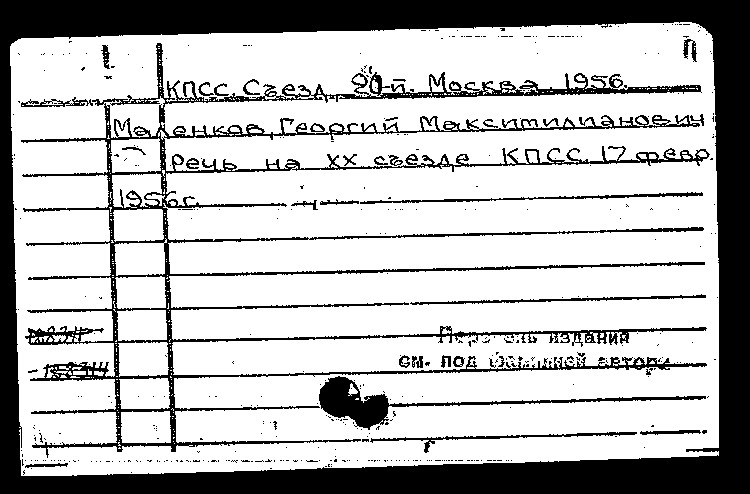 П
КПСС. Съезд, 20-й. Москва. 1956.
Маленков, Георгий Максимилианович
Речь на XX съезде КПСС. 17 февр.
1956г.
Перечень изданий
см. под фамилией автора